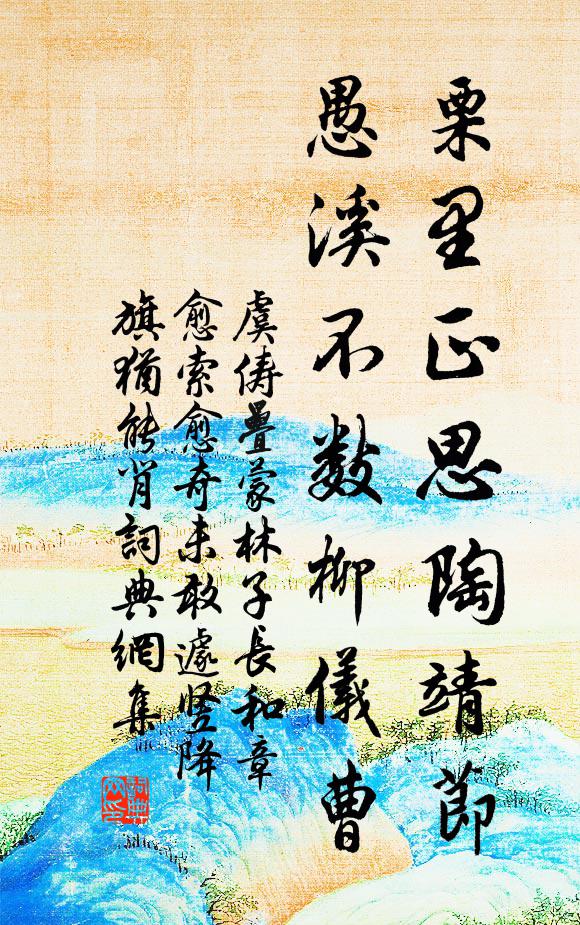 栗里正思陶靖節
愚溪不數柳儀曹
虞儔疊蒙林子長和章
愈索愈奇未敢遽竖降
旗猶能肖詞典網集